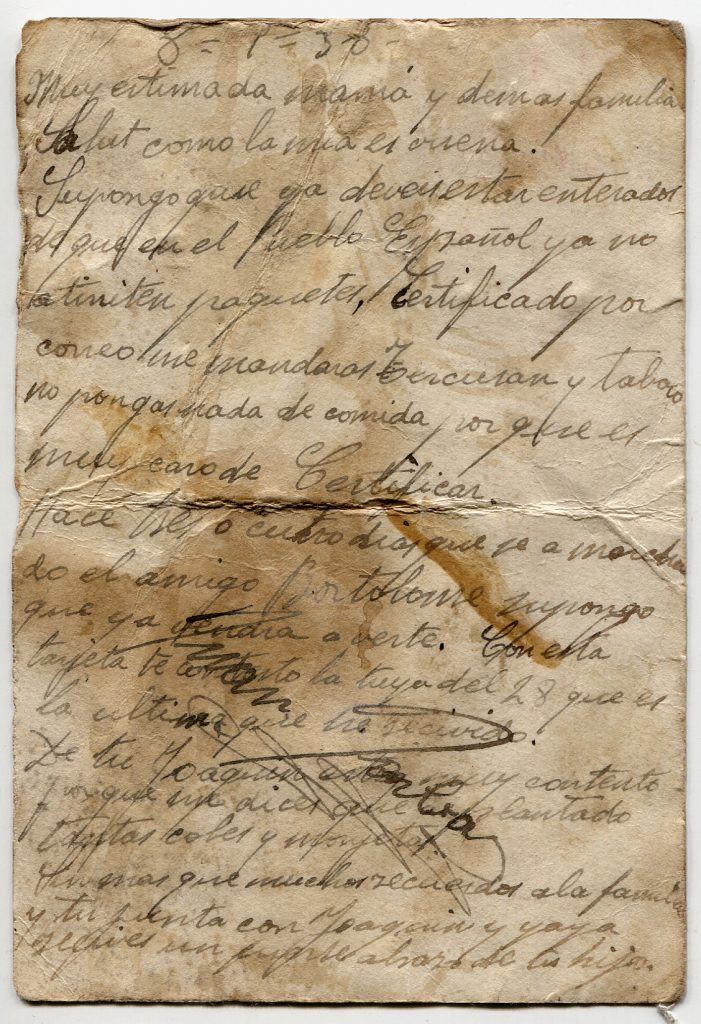 8 = 1 = 38 -
Muy estimada mamá y demas familia
Salut como la mia es vuena.
Supongo que ya deveis estar enterados
de que en el Pueblo Español ya no
atmiten paquetes, Certificado por
correo me mandaras y tabaco
no pongas nada de comida por que es
muy caro de Certificar.
Hace tres o cuatro dias que se a marcha
do el amigo Bartolome supongo
que ya vendra a verte. Con esta
tarjeta te contesto la tuya del 28 que es
la ultima que he recivido.
De tu Joaquin muy contento
por que me dices que plantado
tantas coles y monjetas.
Sin mas que muchos recuerdos a la familia
y tu junta con Joaquin y yaya
recives un fuerte abrazo de tu hijo.